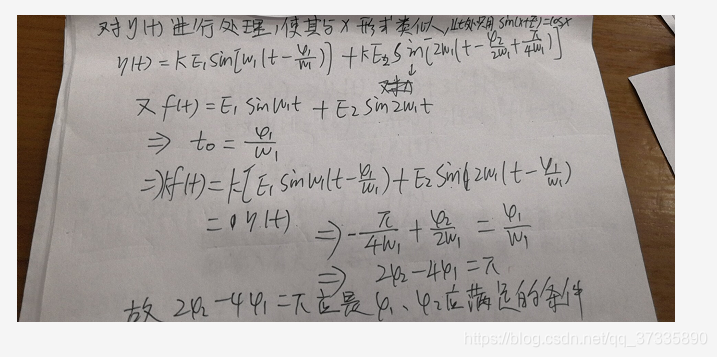 对y(t)进行处理,使其与x形式类似,此处采用sin(x+π/2)=cosx
y(t)=kE₁sin[w₁(t-φ₁/w₁)]+kE₂sin[2w₁(t-φ₂/2w₁+π/4w₁)]
↓
又f(t)=E₁sinw₁t+E₂sin2w₁t
⇒ t₀=φ₁/w₁
⇒kf(t)=k[E₁sinw₁(t-φ₁/w₁)+E₂sin(2w₁(t-φ₁/w₁)
=y(t) ⇒-π/4w₁+φ₂/2w₁=φ₁/w₁
⇒ 2φ₂-4φ₁=π
故 2φ₂-4φ₁=π应是φ₁、φ₂应满足的条件
https://blog.csdn.net/qq_37335890